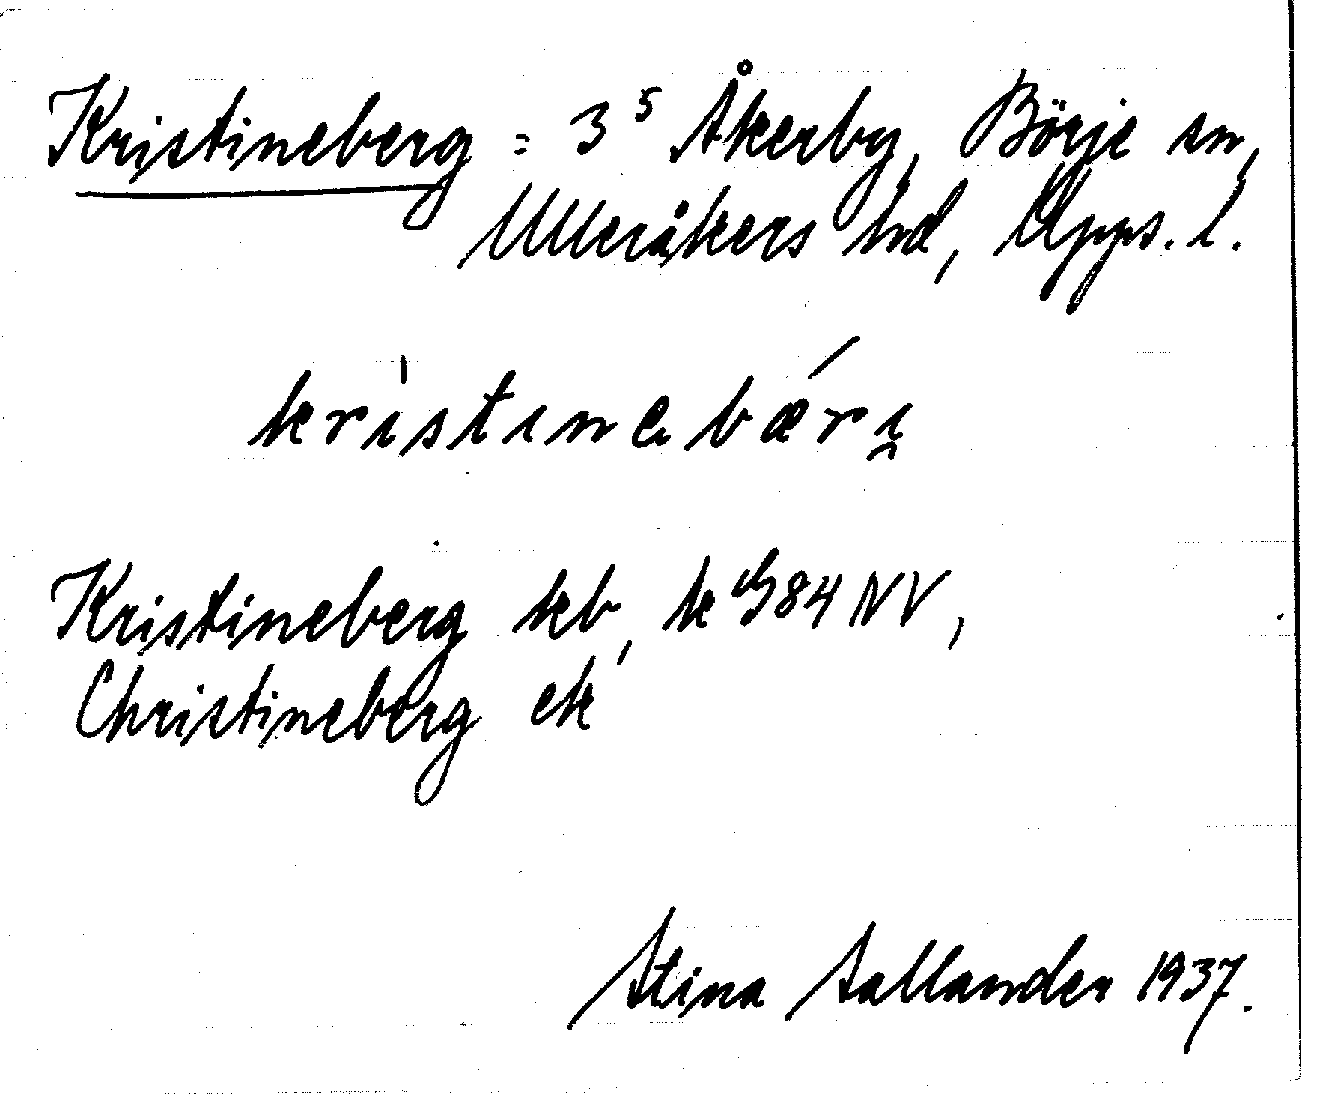 Kristineberg = 3⁵ Åkerby, Börje sn,
Ulleråkers hd, Upps. l.
kristinebæri̯
Kristineberg kb, k G84 NV,
Christineberg ek
Stina Sallander 1937.